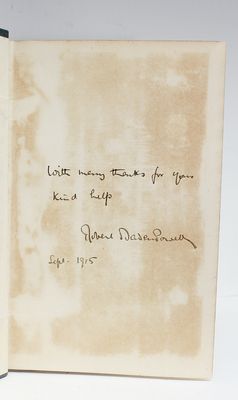 With many thanks for your
kind help
Robert Baden Powell
Sept. 1915